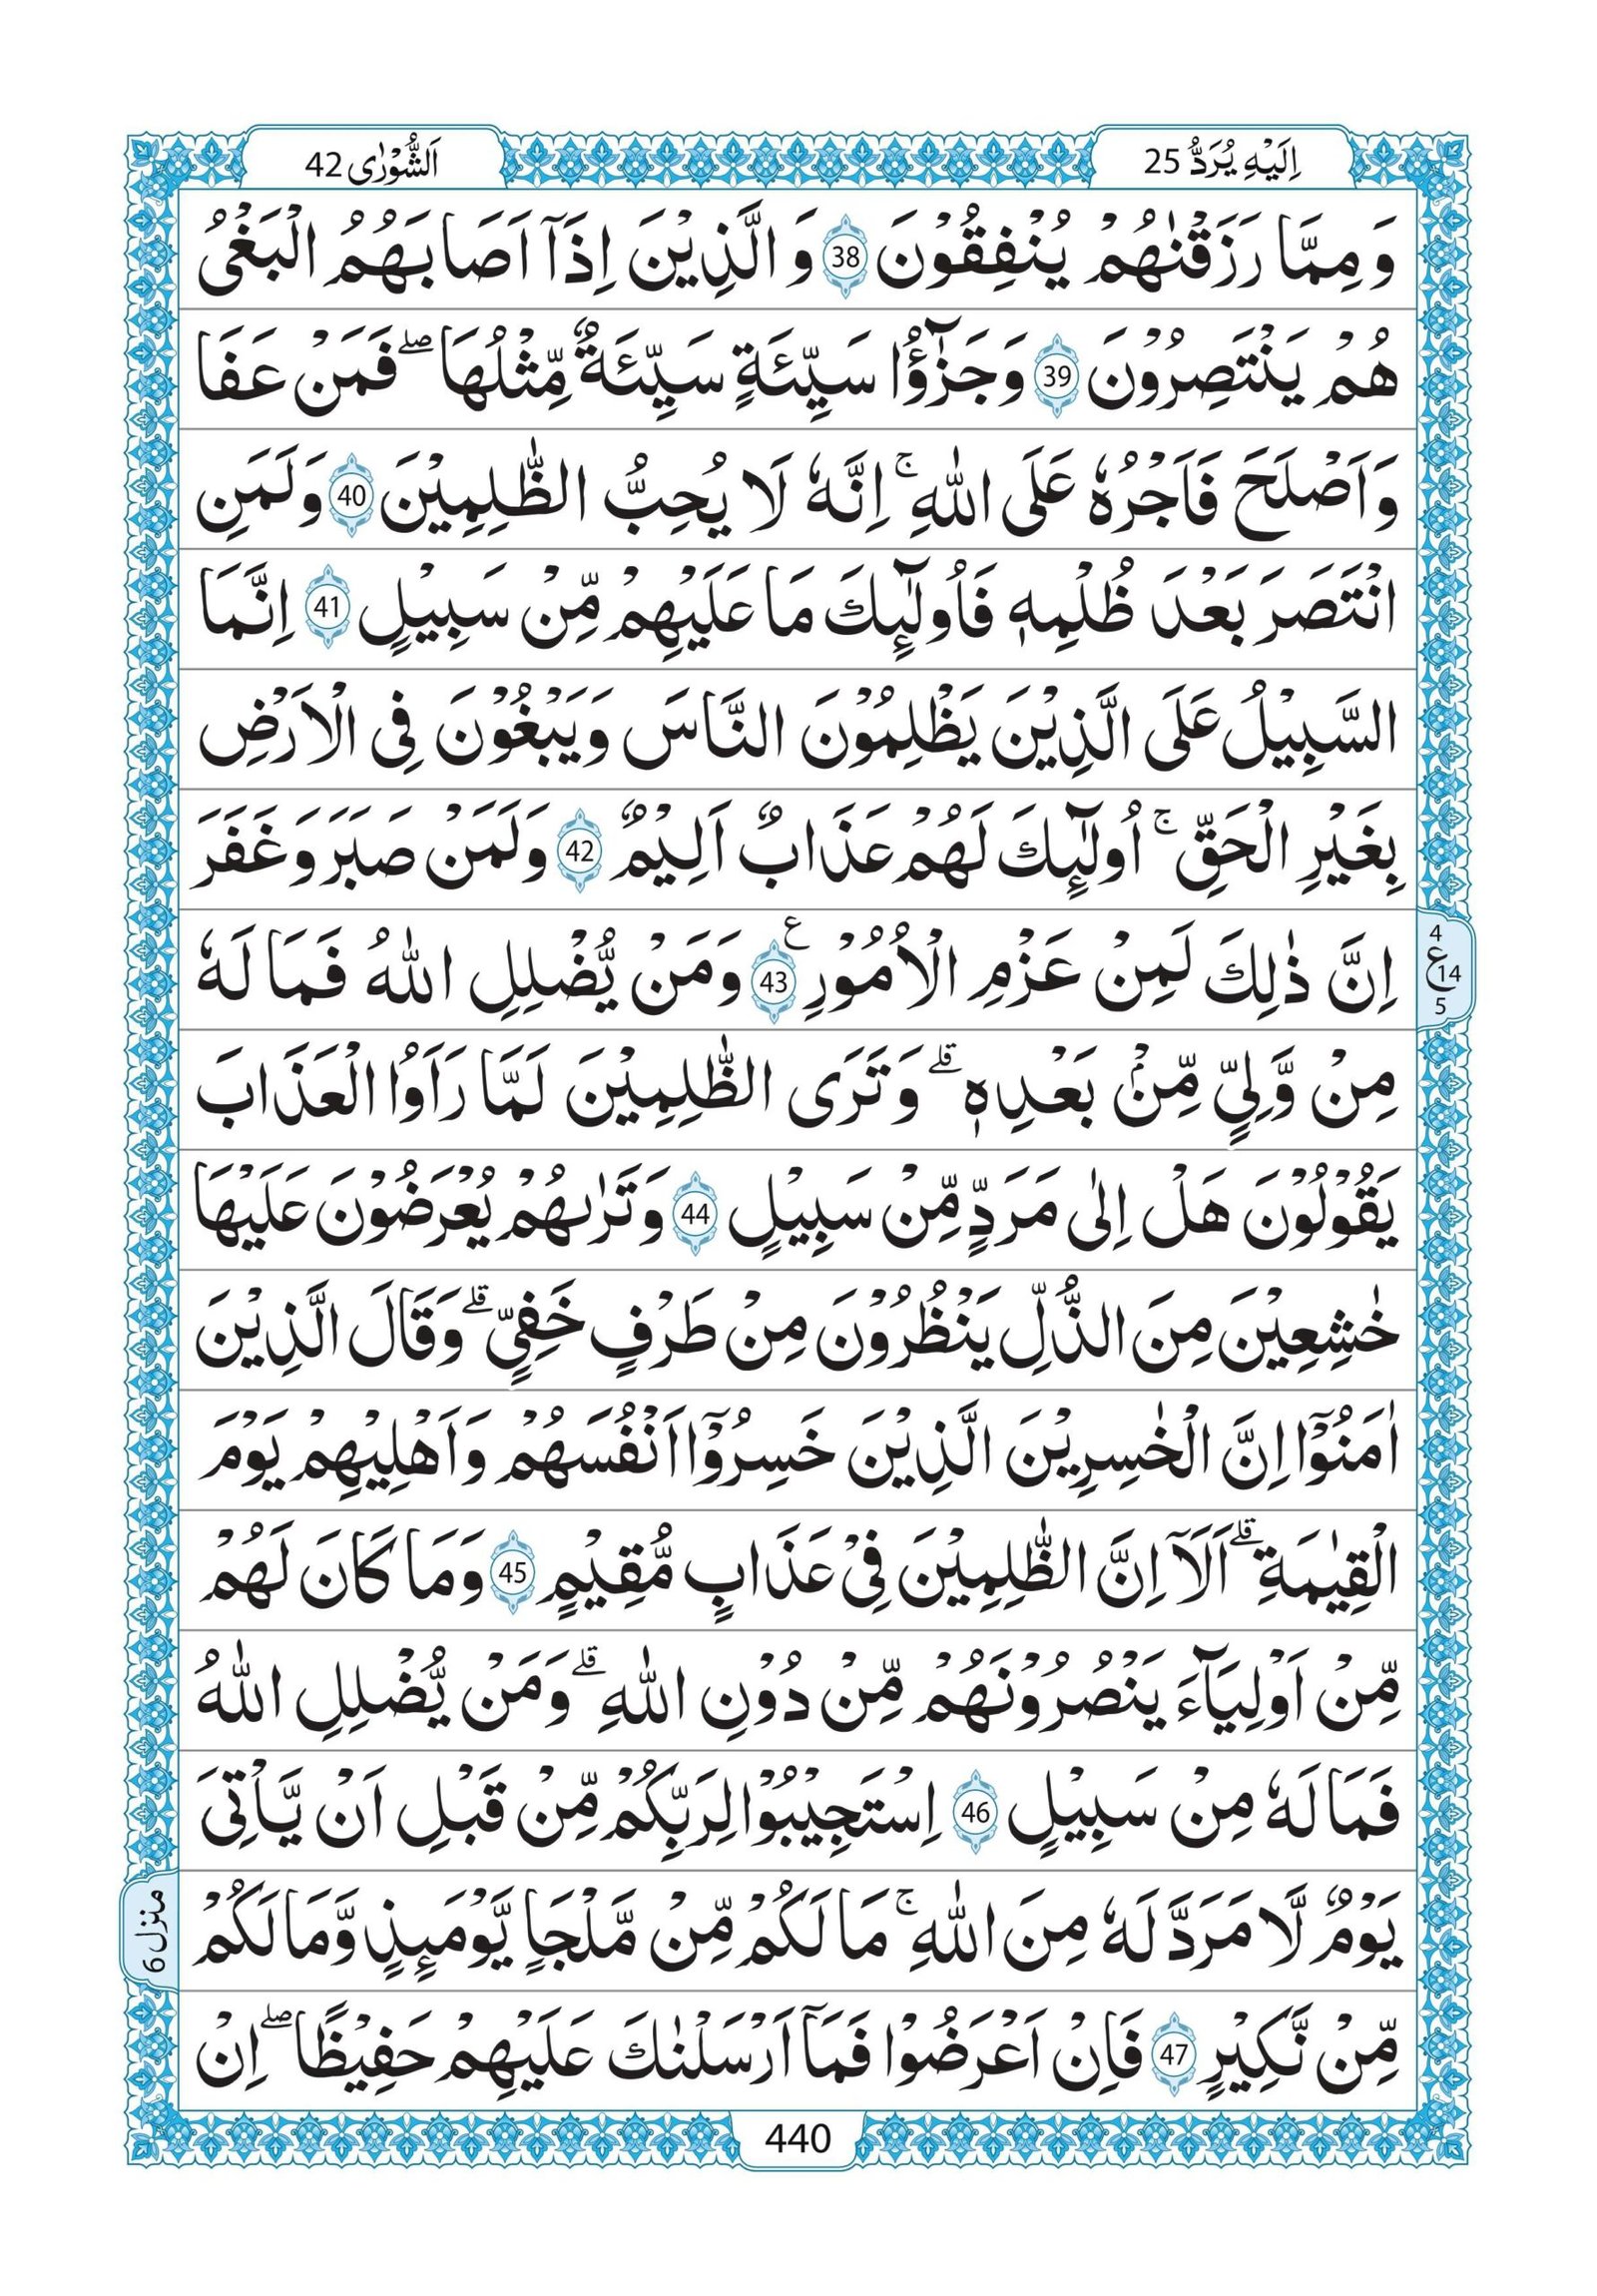 اِلَیْهِ یُرَدُّ 25
اَلشُّوْرٰی 42
وَ مِمَّا رَزَقْنٰهُمْ یُنْفِقُوْنَ 38 وَ الَّذِیْنَ اِذَاۤ اَصَابَهُمُ الْبَغْیُ
هُمْ یَنْتَصِرُوْنَ 39 وَ جَزٰٓؤُا سَیِّئَةٍ سَیِّئَةٌ مِّثْلُهَا ۖ فَمَنْ عَفَا
وَ اَصْلَحَ فَاَجْرُهٗ عَلَی اللّٰهِ ۚ اِنَّهٗ لَا یُحِبُّ الظّٰلِمِیْنَ 40 وَ لَمَنِ
انْتَصَرَ بَعْدَ ظُلْمِهٖ فَاُولٰٓئِكَ مَا عَلَیْهِمْ مِّنْ سَبِیْلٍ 41 اِنَّمَا
السَّبِیْلُ عَلَی الَّذِیْنَ یَظْلِمُوْنَ النَّاسَ وَ یَبْغُوْنَ فِی الْاَرْضِ
بِغَیْرِ الْحَقِّ ۚ اُولٰٓئِكَ لَهُمْ عَذَابٌ اَلِیْمٌ 42 وَ لَمَنْ صَبَرَ وَ غَفَرَ
اِنَّ ذٰلِكَ لَمِنْ عَزْمِ الْاُمُوْرِ 43 ع وَ مَنْ یُّضْلِلِ اللّٰهُ فَمَا لَهٗ
4
ع 14
5
مِنْ وَّلِیٍّ مِّنْۢ بَعْدِهٖ ۗ وَ تَرَی الظّٰلِمِیْنَ لَمَّا رَاَوُا الْعَذَابَ
یَقُوْلُوْنَ هَلْ اِلٰی مَرَدٍّ مِّنْ سَبِیْلٍ 44 وَ تَرٰىهُمْ یُعْرَضُوْنَ عَلَیْهَا
خٰشِعِیْنَ مِنَ الذُّلِّ یَنْظُرُوْنَ مِنْ طَرْفٍ خَفِیٍّ ۗ وَ قَالَ الَّذِیْنَ
اٰمَنُوْۤا اِنَّ الْخٰسِرِیْنَ الَّذِیْنَ خَسِرُوْۤا اَنْفُسَهُمْ وَ اَهْلِیْهِمْ یَوْمَ
الْقِیٰمَةِ ۗ اَلَاۤ اِنَّ الظّٰلِمِیْنَ فِیْ عَذَابٍ مُّقِیْمٍ 45 وَ مَا كَانَ لَهُمْ
مِّنْ اَوْلِیَآءَ یَنْصُرُوْنَهُمْ مِّنْ دُوْنِ اللّٰهِ ۗ وَ مَنْ یُّضْلِلِ اللّٰهُ
فَمَا لَهٗ مِنْ سَبِیْلٍ 46 اِسْتَجِیْبُوْا لِرَبِّكُمْ مِّنْ قَبْلِ اَنْ یَّاْتِیَ
یَوْمٌ لَّا مَرَدَّ لَهٗ مِنَ اللّٰهِ ۚ مَا لَكُمْ مِّنْ مَّلْجَاٍ یَّوْمَىِٕذٍ وَّ مَا لَكُمْ
منزل 6
مِّنْ نَّكِیْرٍ 47 فَاِنْ اَعْرَضُوْا فَمَاۤ اَرْسَلْنٰكَ عَلَیْهِمْ حَفِیْظًا ۖ اِنْ
440